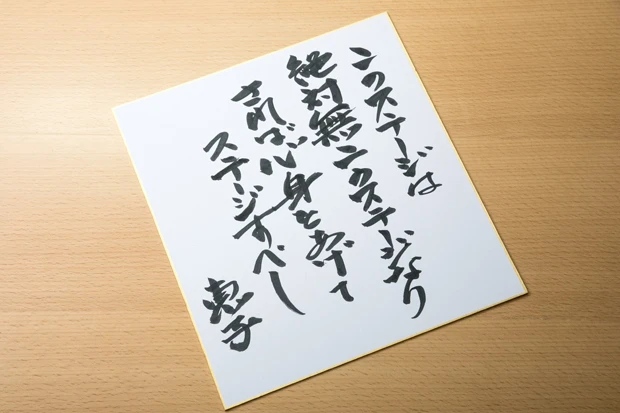 このステージは
絶対無二のステージなり
されば心身をあげて
ステージすべし
恵子